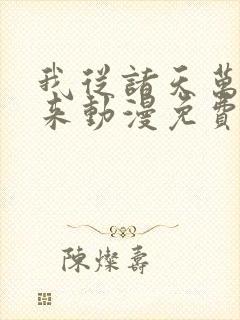 我從諸天萬
來動漫免費
陳燦壽